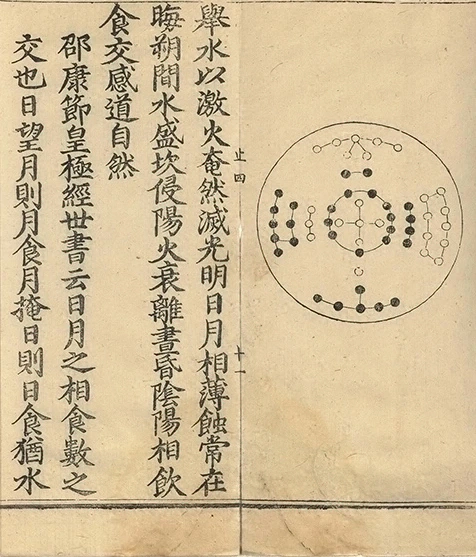 舉水以激火奄然滅光明日月相薄蝕常在
晦朔間水盛坎侵陽火衰離晝昏陰陽相飲
食交感道自然
邵康節皇極經世書云日月之相食數之
交也日望月則月食月掩日則日食猶水
止四
十一